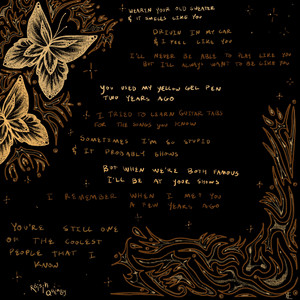 Wearin your old sweater
& it smells like you
Drivin in my car
& I feel like you
I'll never be able to play like you
But I'll always want to be like you
You used my yellow gel pen
two years ago
I tried to learn guitar tabs
for the songs you know
Sometimes I'm so stupid
& it probably shows
But when we're both famous
I'll be at your shows
I remember when I met you
a few years ago
You're still one
of the coolest
people that I
know